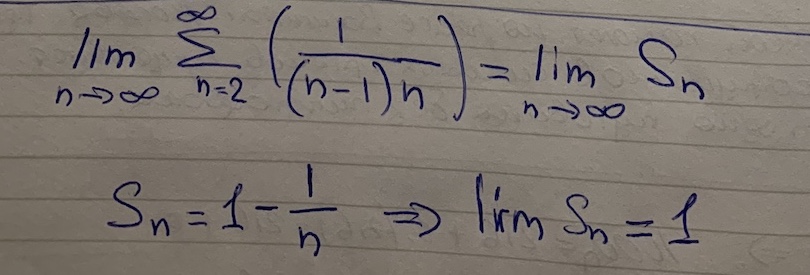 lim n→∞ ∞ Σ n=2 (1/((n-1)n)) = lim n→∞ Sn
Sn = 1 - 1/n ⇒ lim Sn = 1